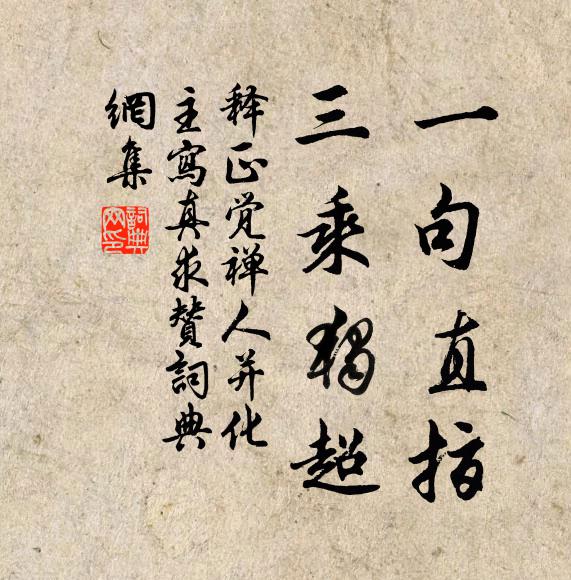 一句直指
三乘独超
释正觉禅人并化
主寫真求賛詞典
網集
詞典网印